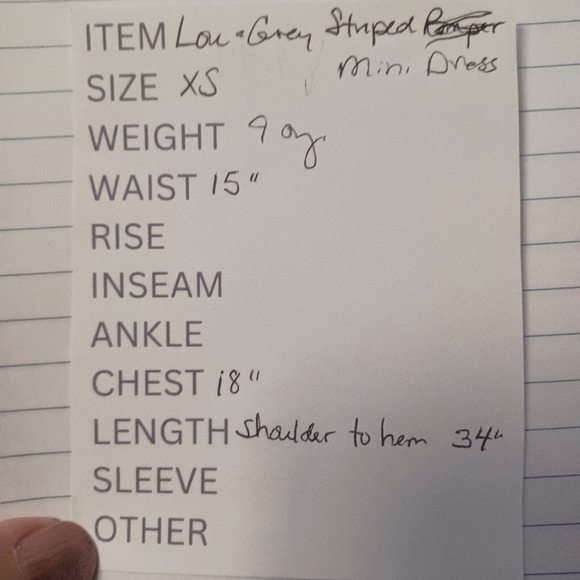 ITEM Lou-Grey Striped
Mini Dress
SIZE XS
WEIGHT 9 oz.
WAIST 15"
RISE
INSEAM
ANKLE
CHEST 18"
LENGTH Shoulder to hem 34"
SLEEVE
OTHER